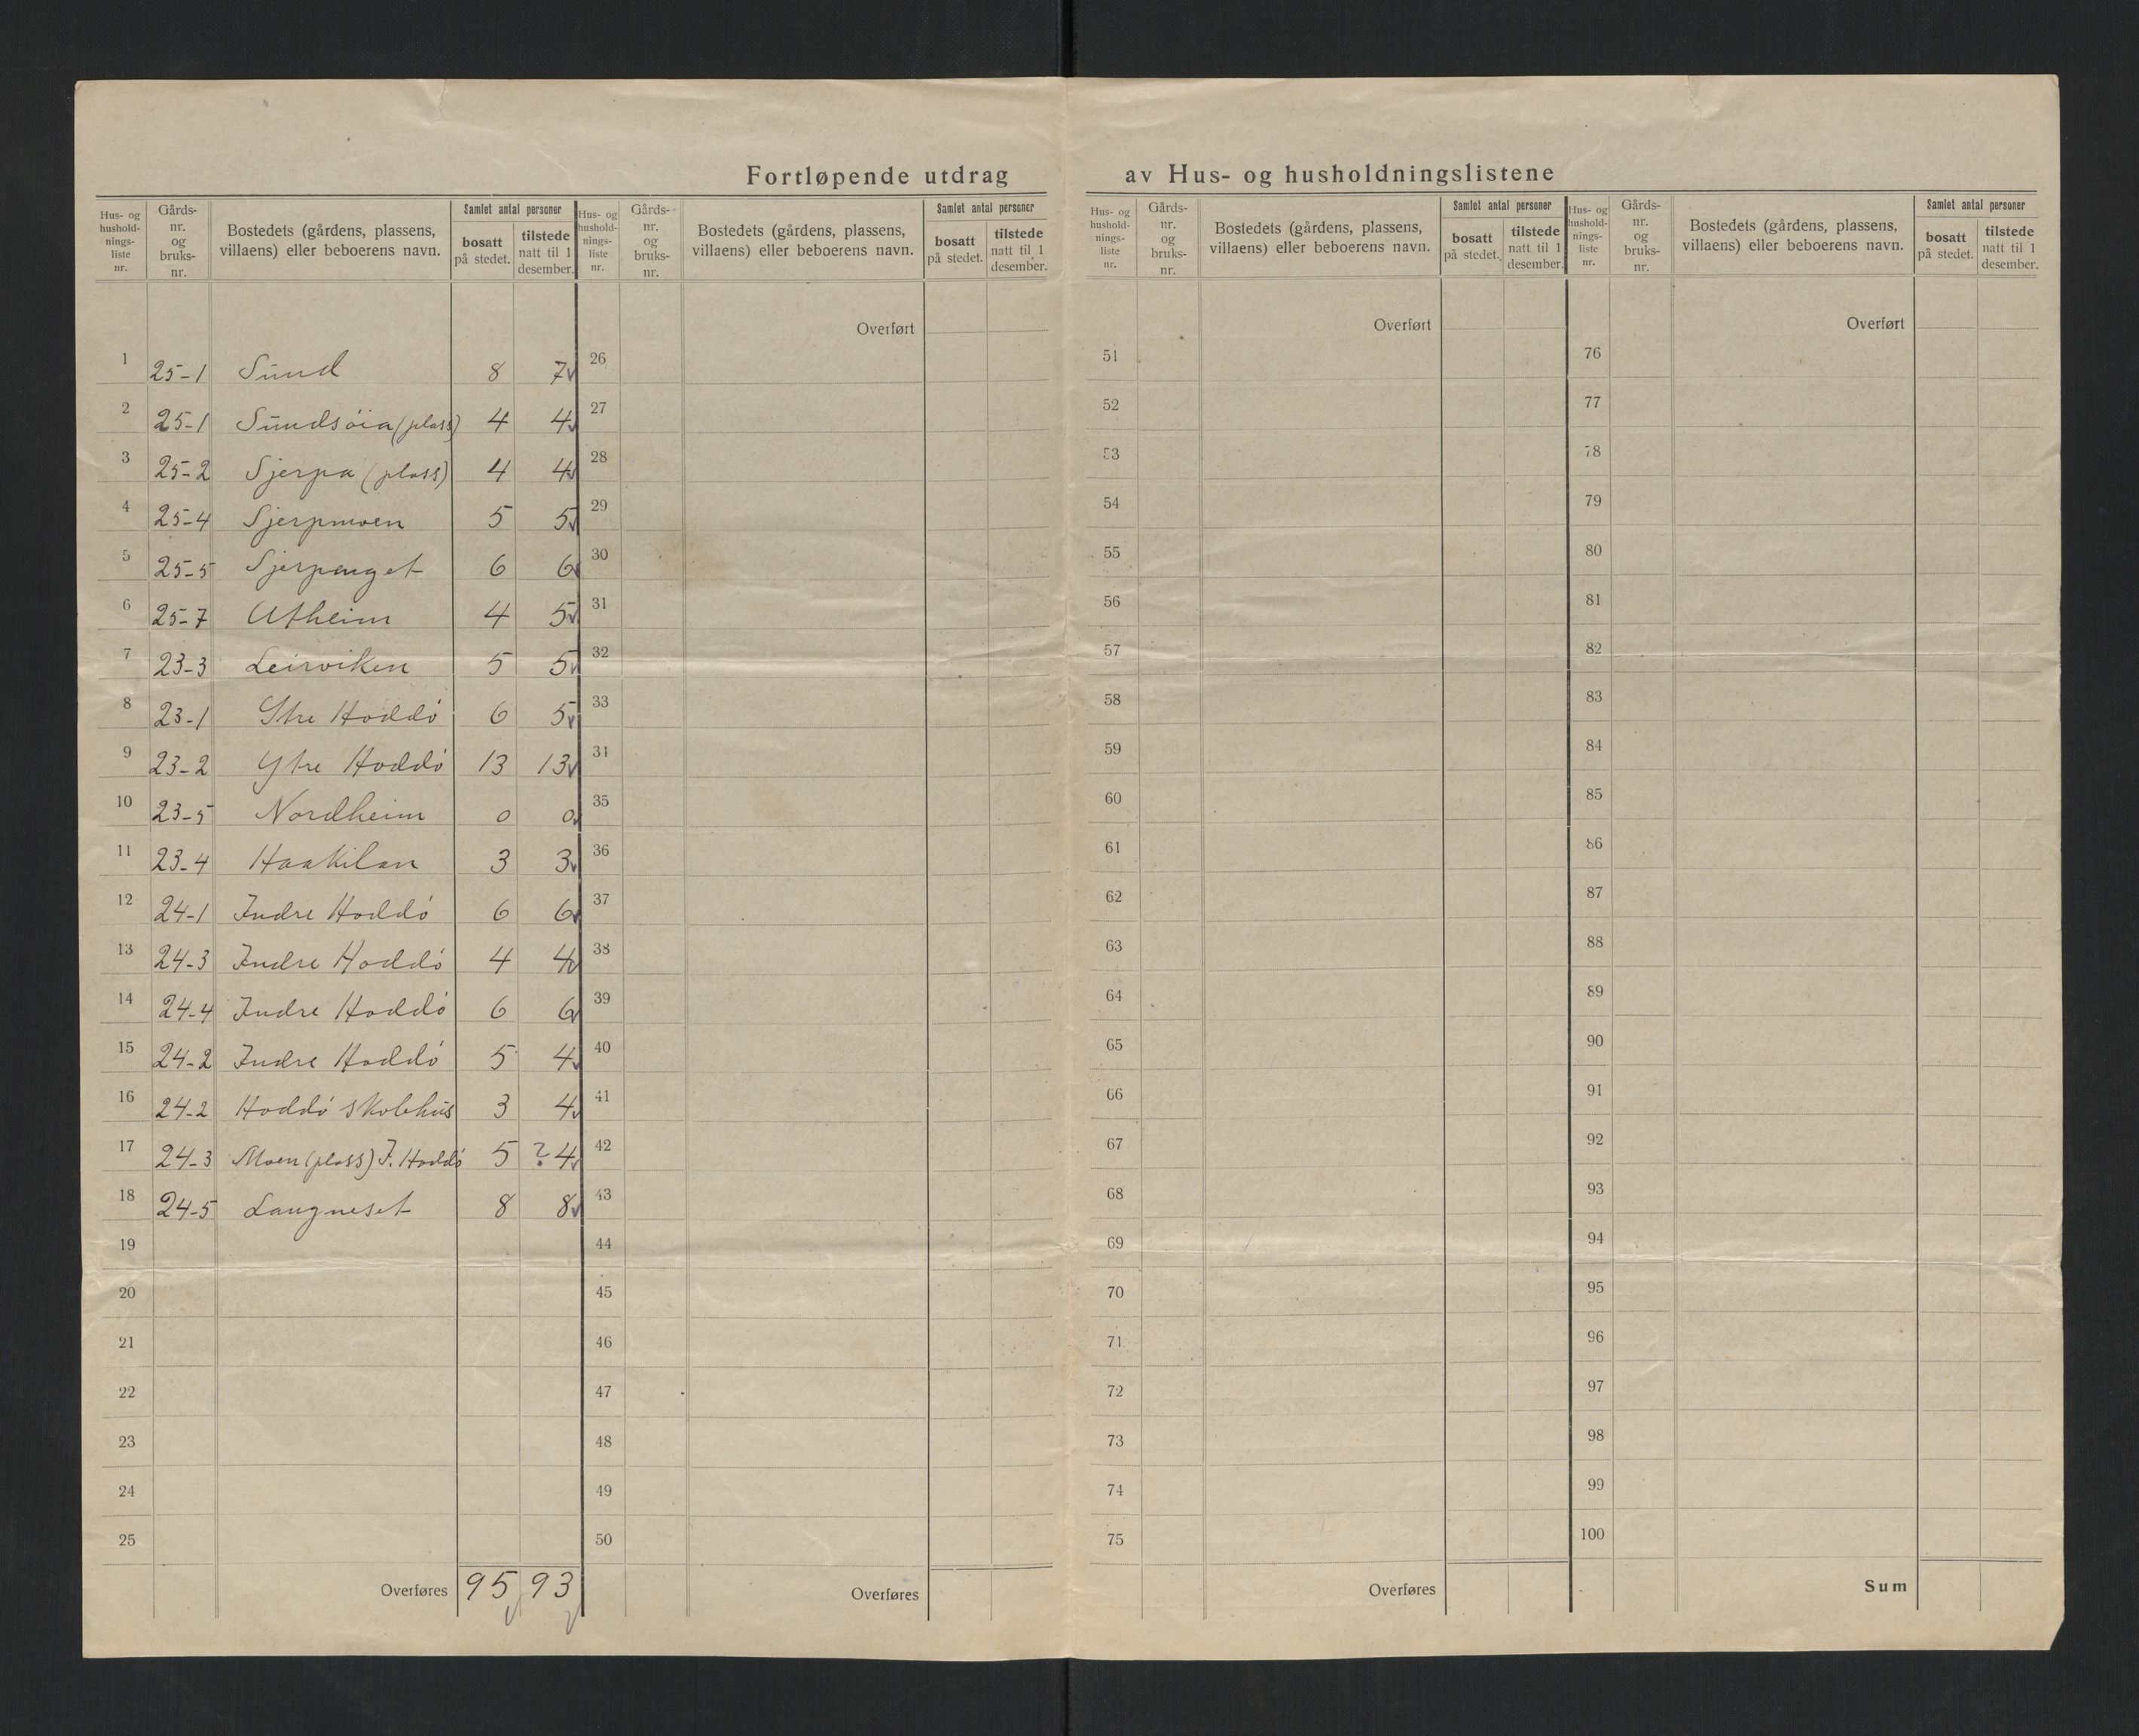 Fortløpende utdrag av Hus- og husholdningslistene
Hus- og hushold-nings-liste nr. Gårds-nr. og bruks-nr. Bostedets (gårdens, plassens, villaens) eller beboerens navn. Samlet antal personer bosatt på stedet. tilstede natt til 1 desember.
Hus- og hushold-nings-liste nr. Gårds-nr. og bruks-nr. Bostedets (gårdens, plassens, villaens) eller beboerens navn. Samlet antal personer bosatt på stedet. tilstede natt til 1 desember.
Hus- og hushold-nings-liste nr. Gårds-nr. og bruks-nr. Bostedets (gårdens, plassens, villaens) eller beboerens navn. Samlet antal personer bosatt på stedet. tilstede natt til 1 desember.
Hus- og hushold-nings-liste nr. Gårds-nr. og bruks-nr. Bostedets (gårdens, plassens, villaens) eller beboerens navn. Samlet antal personer bosatt på stedet. tilstede natt til 1 desember.
Overført Overført Overført
1 25-1 Sund 8 7 26 51 76
2 25-1 Sundsöia (plass) 4 4 27 52 77
3 25-2 Sjerpa (plass) 4 4 28 53 78
4 25-4 Sjerpmoen 5 5 29 54 79
5 25-5 6 6 30 55 80
6 25-7 Utheim 4 5 31 56 81
7 23-3 Leirviken 5 5 32 57 82
8 23-1 Ytre Hoddö 6 5 33 58 83
9 23-2 Ytre Hoddö 13 13 34 59 84
10 23-5 Nordheim 0 0 35 60 85
11 23-4 Haakilan 3 3 36 61 86
12 24-1 Indre Hoddö 6 6 37 62 87
13 24-3 Indre Hoddö 4 4 38 63 88
14 24-4 Indre Hoddö 6 6 39 64 89
15 24-2 Indre Hoddö 5 4 40 65 90
16 24-2 Hoddö skolehus 3 4 41 66 91
17 24-3 Moen (plass) I. Hoddö 5 ? 4 42 67 92
18 24-5 Langneset 8 8 43 68 93
19 44 69 94
20 45 70 95
21 46 71 96
22 47 72 97
23 48 73 98
24 49 74 99
25 50 75 100
Overføres 95 93 Overføres Overføres Sum